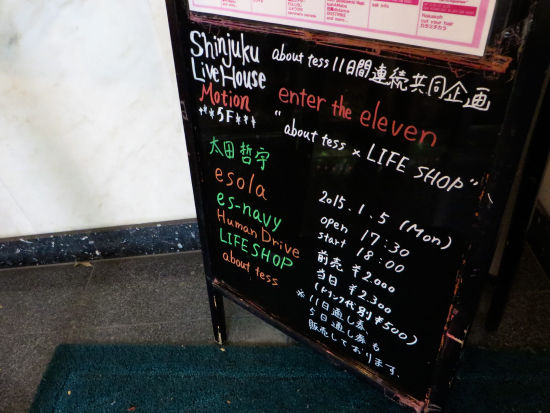 Shinjuku
Live House
Motion
**5F***
about tess 11日間連続共同企画
enter the eleven
"about tess × LIFE SHOP"
太田哲宇
esola
es-navy
Human Drive
LIFE SHOP
about tess
2015.1.5 (Mon)
open 17:30
start 18:00
前売 ¥2.000
当日 ¥2.300
(ドリンク代別¥500)
※11日通し券
5日通し券も
販売しております。